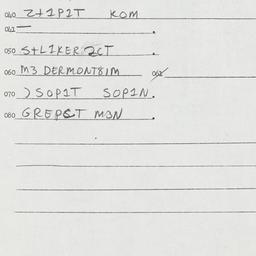 040 Z+1P1T KOM
041 —
050 S+L1KER 2CT
060 M3 DERMONT81M 061
070 ) SOP1T SOP1N.
080 GREPCT M3N